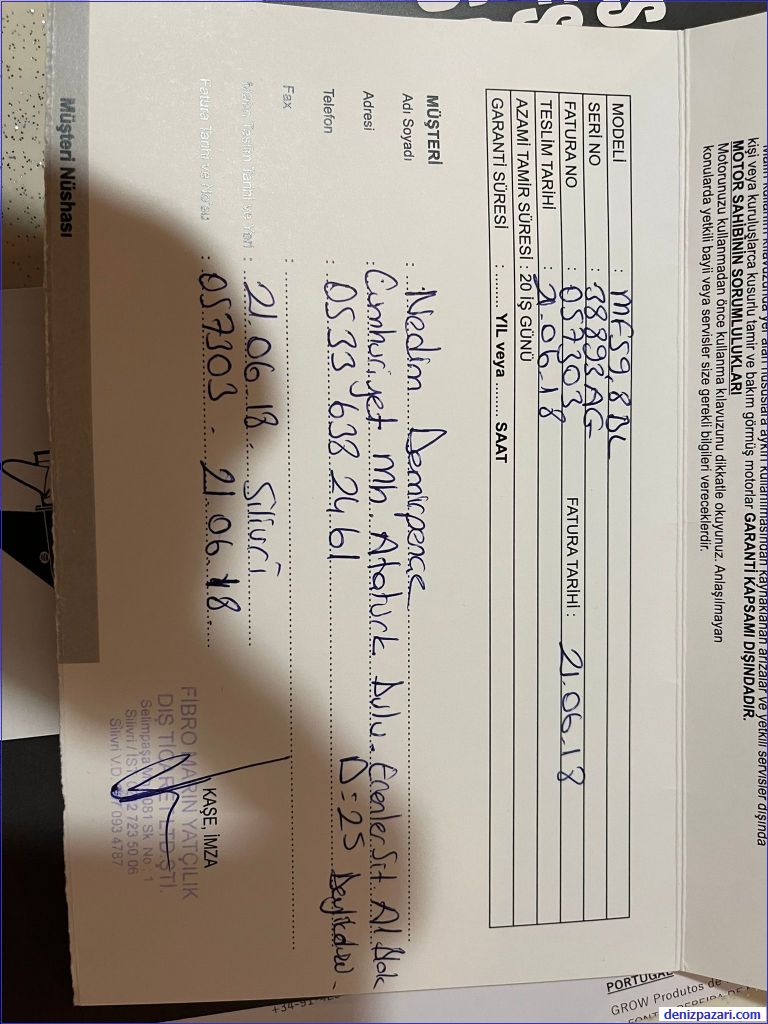 kişi veya kuruluşlarca kusurlu tamir ve bakım görmüş motorlar GARANTİ KAPSAMI DIŞINDADIR.
MOTOR SAHİBİNİN SORUMLULUKLARI
Motorunuzu kullanmadan önce kullanma kılavuzunu dikkatle okuyunuz. Anlaşılmayan
konularda yetkili bayii veya servisler size gerekli bilgileri vereceklerdir.
MODELİ : MFS9,8BL
SERİ NO : 38893AG
FATURA NO : 057303 FATURA TARİHİ : 21.06.18
TESLİM TARİHİ : 21.06.18
AZAMİ TAMİR SÜRESİ : 20 İŞ GÜNÜ
GARANTİ SÜRESİ : ........ YIL veya ........ SAAT
MÜŞTERİ
Adı Soyadı : Nedim Demirpençe
Adresi : Cumhuriyet mh. Atatürk Bulv. Erenler Sit. A1 Blok
D=25
Telefon : 0533 638 24 61
Fax :
Malın Teslim Tarihi ve Yeri : 21.06.18 - Silivri
Fatura Tarihi ve Nosu : 057303 - 21.06.18
KAŞE, İMZA
FIBRO MARIN YATÇILIK
DIŞ TİCARET LTD.ŞTİ.
Selimpaşa 081 Sk. No : 1
Silivri / İST. 723 50 06
Silivri V.D. 093 4787
Müşteri Nüshası
PORTUGAL
GROW Produtos de
denizpazari.com